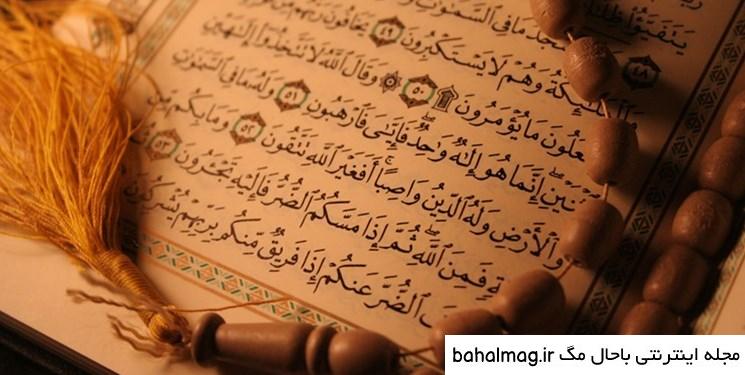 يَتَفَيَّؤُا۟
٤٨ مَا فِى ٱلسَّمَـٰوَ
وَهُمْ لَا يَسْتَكْبِرُونَ ٤٩ يَخَافُونَ رَبَّهُم مِّن
مَا يُؤْمَرُونَ ۩ ٥٠ ۞ وَقَالَ ٱللَّهُ لَا تَتَّخِذُوٓا۟ إِلَـٰهَيْنِ
ٱثْنَيْنِ ۖ إِنَّمَا هُوَ إِلَـٰهٌ وَٰحِدٌ ۖ فَإِيَّـٰىَ فَٱرْهَبُونِ ٥١ وَلَهُۥ مَا فِى ٱلسَّمَـٰوَٰتِ
وَٱلْأَرْضِ وَلَهُ ٱلدِّينُ وَاصِبًا ۚ أَفَغَيْرَ ٱللَّهِ تَتَّقُونَ ٥٢ وَمَا بِكُم مِّن
فَمِنَ ٱللَّهِ ۖ ثُمَّ إِذَا مَسَّكُمُ ٱلضُّرُّ فَإِلَيْهِ تَجْـَٔرُونَ ٥٣
ٱلضُّرَّ عَنكُمْ إِذَا فَرِيقٌ مِّنكُم بِرَبِّهِمْ يُشْرِكُونَ
مجله اینترنتی باحال مگ bahalmag.ir